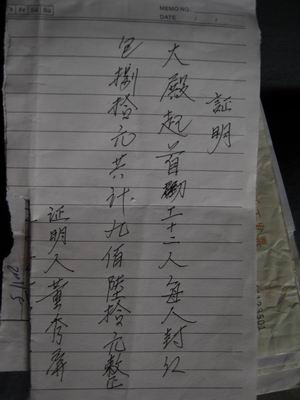 MEMO NO.
DATE / /
証明
大殿起首砌工十二人每人封红
包捌拾元共计九佰陆拾元整
证明人董秀屏